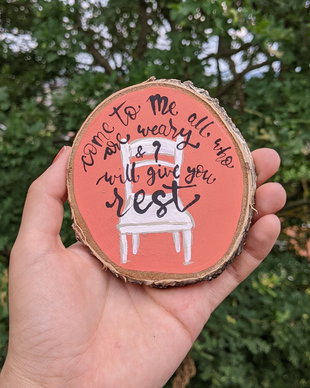 come to Me all who
are weary
& I
will give you
rest